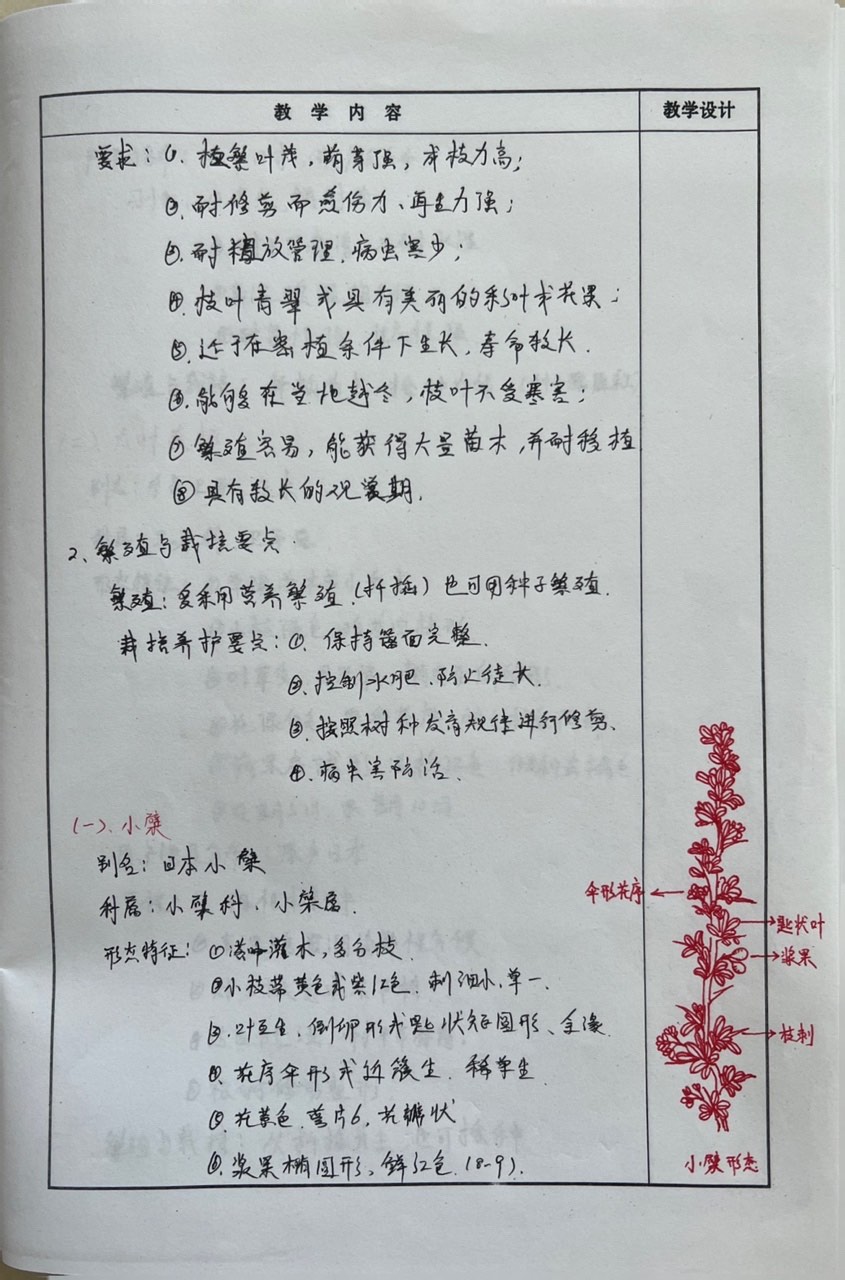 教 学 内 容
教学设计
要求：①. 植繁叶茂，萌芽强，成枝力高；
②. 耐修剪而愈伤力、再生力强；
③. 耐粗放管理、病虫害少；
④. 枝叶青翠或具有美丽的彩叶或花果；
⑤. 适于在密植条件下生长，寿命较长．
⑥. 能够在当地越冬，枝叶不受寒害；
⑦ 繁殖容易，能获得大量苗木，并耐移植
⑧ 具有较长的观赏期．
2、繁殖与栽培要点．
繁殖：多采用营养繁殖（扦插）也可用种子繁殖．
栽培养护要点：①. 保持篱面完整．
②. 控制水肥、防止徒长．
③. 按照树种发育规律进行修剪、
④. 病虫害防治．
(一)、小檗
别名：日本小檗
科属：小檗科、小檗属．
形态特征：①落叶灌木，多分枝．
②小枝带黄色或紫红色．刺细小，单一．
③. 叶互生，倒卵形或匙状矩圆形、全缘
④. 花序伞形或近簇生．稀单生
⑤. 花黄色．萼片6，花瓣状
⑥. 浆果椭圆形，鲜红色．(8-9)．
伞形花序
匙状叶
浆果
枝刺
小檗形态